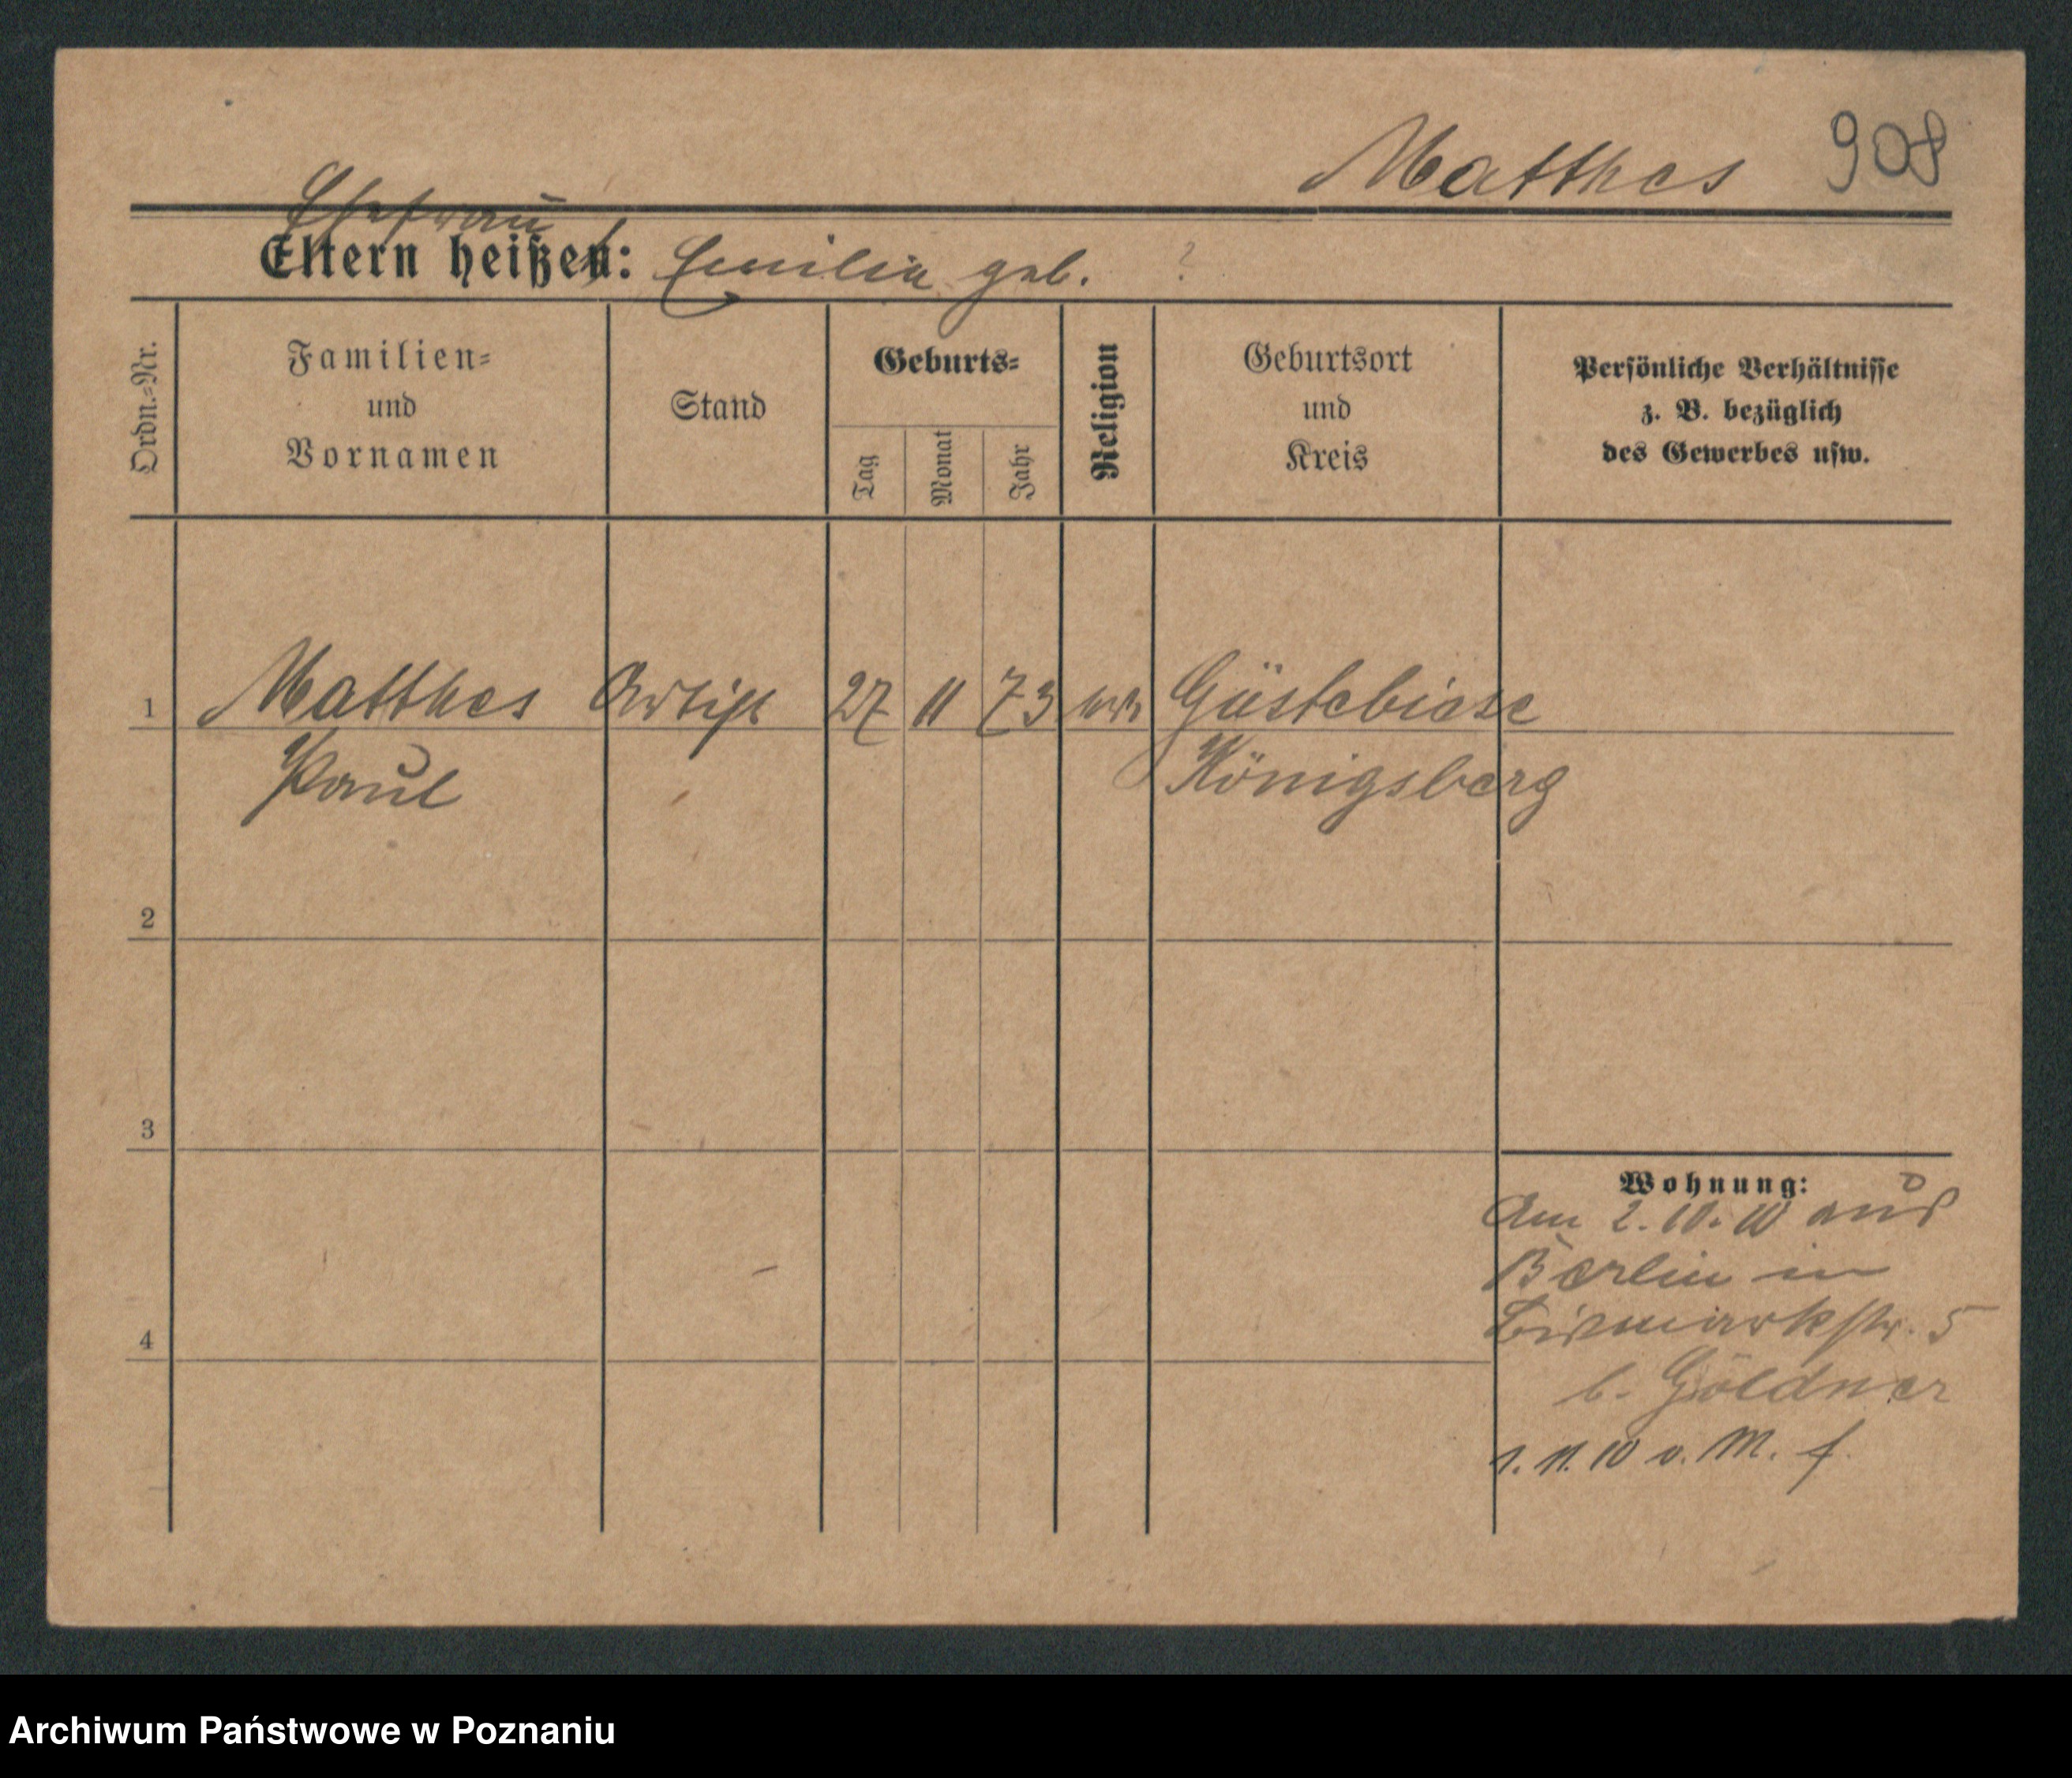 Matthes 908
Ehefrau
Eltern heißen: Emilie geb. ?
Ordn.-Nr.
Familien-
und
Vornamen
Stand
Geburts-
Tag
Monat
Jahr
Religion
Geburtsort
und
Kreis
Persönliche Verhältnisse
z. B. bezüglich
des Gewerbes usw.
1 Matthes Artist 27 11 73 Güstebiese
Paul Königsberg
2
3
4
Wohnung:
Am 2. 10. 10 aus
Berlin in
Bismarkstr. 5
b. Göldner
1. 11. 10 v. M. f.
Archiwum Państwowe w Poznaniu